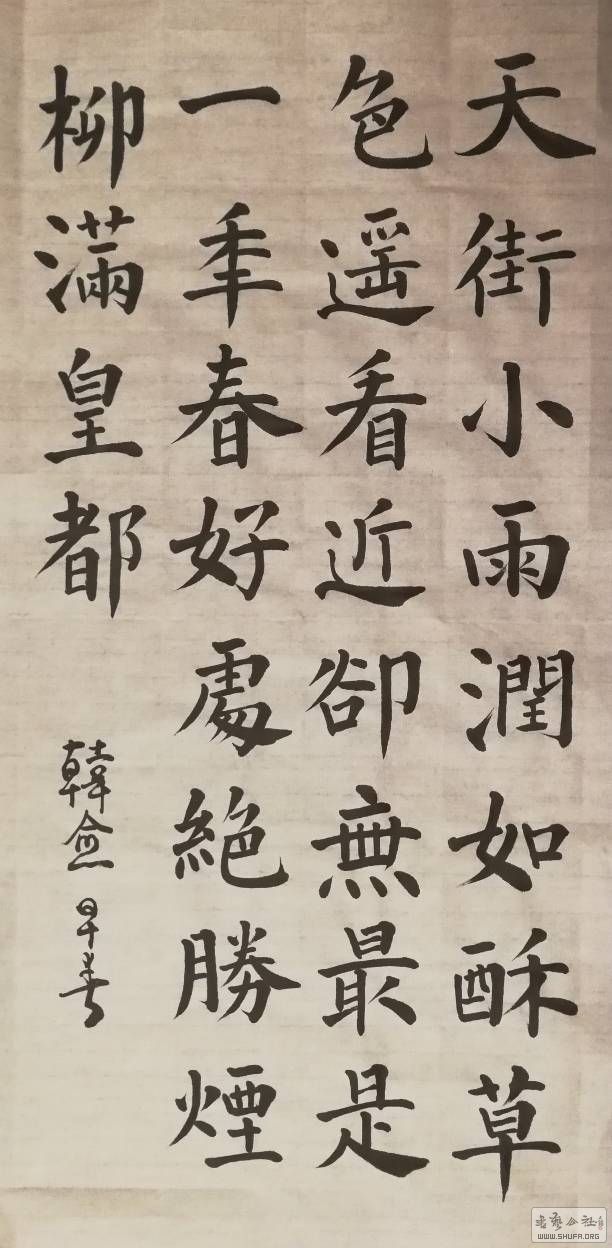 天街小雨潤如酥草
色遥看近卻無最是
一年春好處絕勝煙
柳滿皇都
韓愈 早春
書藝公社
WWW.SHUFA.ORG